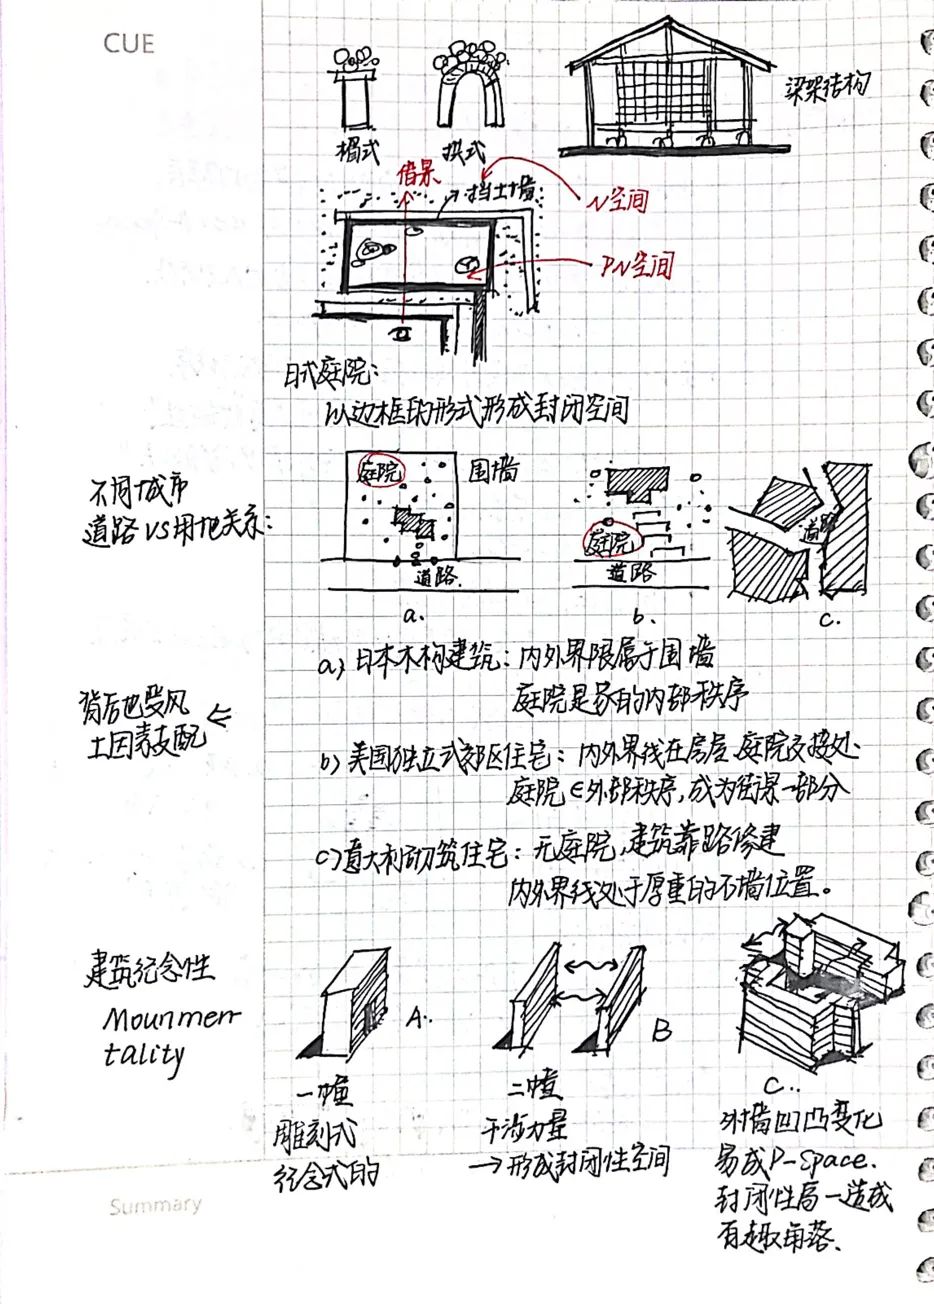 CUE
楣式
拱式
梁架结构
借景
挡土墙
N空间
PN空间
日式庭院:
以边框的形式形成封闭空间
不同城市
道路VS用地关系:
庭院
围墙
道路.
a.
庭院
道路
b.
道路
c.
a) 日本木构建筑: 内外界限属于围墙
庭院是家的内部秩序
背后也受风
土因素支配
b) 美国独立式郊区住宅: 内外界线在房屋.庭院交接处.
庭院∈外部秩序,成为街景一部分
c) 意大利砌筑住宅: 无庭院,建筑靠路修建
内外界线处于厚重的石墙位置。
建筑纪念性
Mounmen
tality
A.
一幢
雕刻式
纪念式的
B
二幢
干涉力量
→形成封闭性空间
C..
外墙凹凸变化
易成P-Space.
封闭性高—造成
有趣角落.
Summary